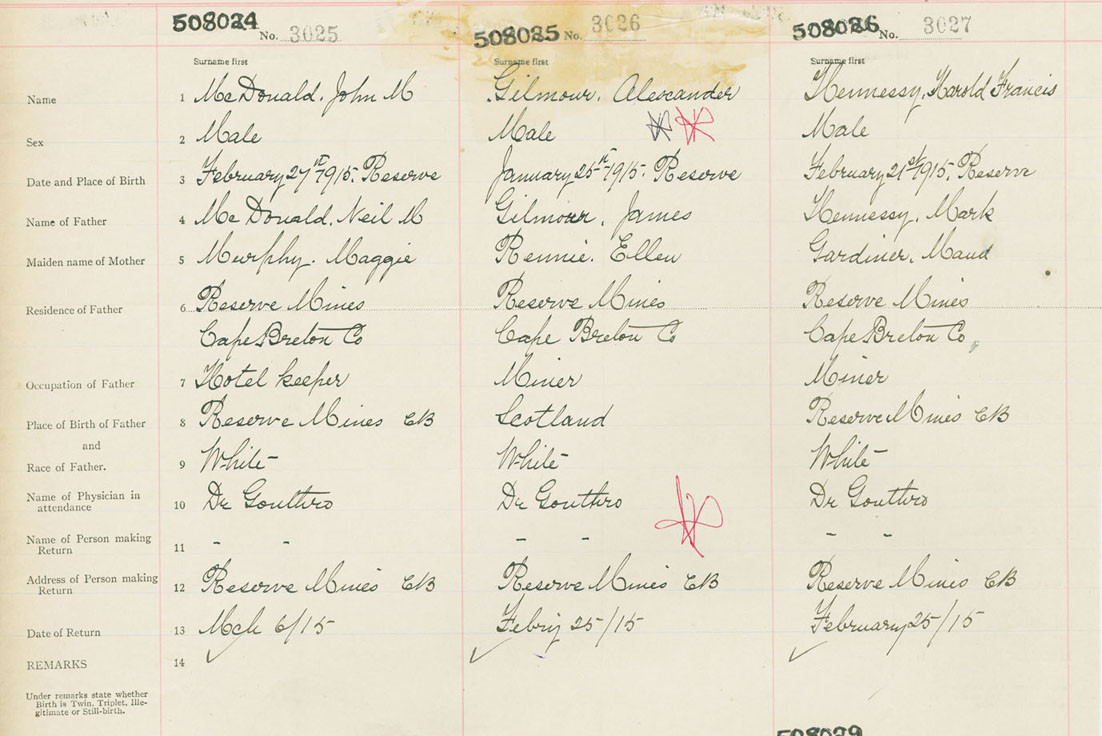 508024 No. 3025 508025 No. 3026 508026 No. 3027
Surname first Surname first Surname first
Name 1 McDonald, John M Gilmour, Alexander Hennessy, Harold Francis
Sex 2 Male Male Male
Date and Place of Birth 3 February 27th 1915. Reserve January 25th 1915. Reserve February 21st 1915. Reserve
Name of Father 4 McDonald, Neil M Gilmour, James Hennessy, Mark
Maiden name of Mother 5 Murphy. Maggie Rennie. Ellen Gardiner. Maud
Residence of Father 6 Reserve Mines Reserve Mines Reserve Mines
Cape Breton Co Cape Breton Co Cape Breton Co,
Occupation of Father 7 Hotel keeper Miner Miner
Place of Birth of Father 8 Reserve Mines CB Scotland Reserve Mines CB
and
Race of Father. 9 White White White
Name of Physician in
attendance 10 Dr Gouthro Dr Gouthro Dr Gouthro
Name of Person making
Return 11 - - - - - -
Address of Person making
Return 12 Reserve Mines CB Reserve Mines CB Reserve Mines CB
Date of Return 13 Mch 6/15 Febry 25/15 February 25/15
REMARKS 14
Under remarks state whether
Birth is Twin, Triplet, Ille-
gitimate or Still-birth.
508029